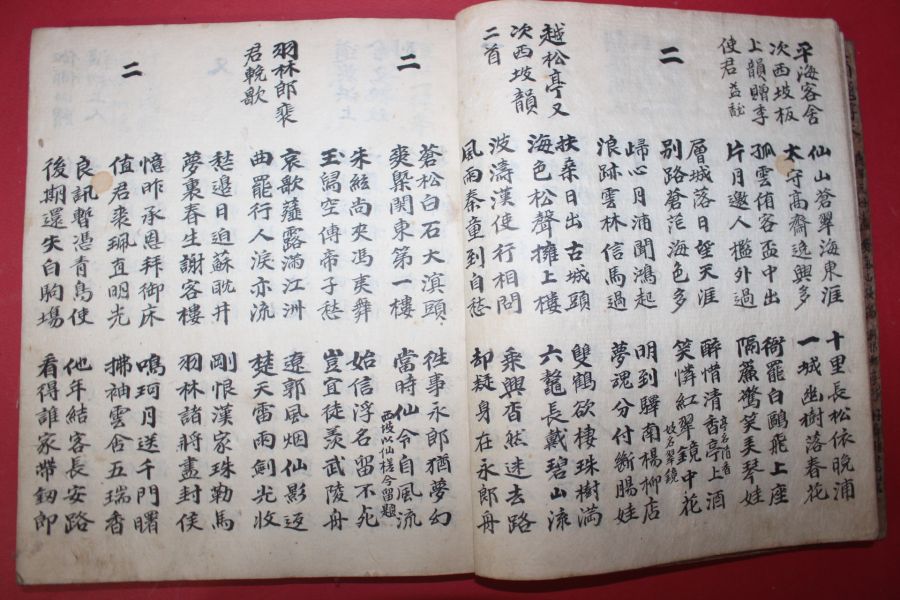 平海客舍
次西坡板
上韻贈李
使君
仙山蒼翠海東涯
太守高齋逸興多
十里長松依晚浦
一城幽樹落春花
孤雲侑客盃中出
片月邀人檻外過
衙罷白鷗飛上座
隔簾驚笑美琴娃
二
層城落日望天涯
別路蒼茫海色多
醉惜清香亭上酒
亭名清香
笑憐紅翠鏡中花
妓名翠鏡
歸心月浦聞鴻起
浪跡雲林信馬過
明到驛南楊柳店
夢魂分付斷腸娃
越松亭又
次西坡韻
二首
扶桑日出古城頭
海色松聲擁上樓
雙鶴欲棲珠樹滿
六鰲長戴碧山流
波濤漢使行相問
風雨秦童到自愁
乘興杳然迷去路
却疑身在永郎舟
二
蒼松白石大溟頭
爽槩関東第一樓
往事永郎猶夢幻
當時仙令自風流
西坡以仙槎令留題
朱絃尚夾馮夷舞
玉舄空傳帝子愁
始信浮名留不死
豈宜徒羨武陵舟
羽林郎裴
君輓歌
哀歌薤露滿江洲
曲罷行人淚亦流
遼郭風烟仙影返
楚天雷雨劍光收
愁邊日迫蘇耽井
夢裏春生謝客樓
剛恨漢家珠勒馬
羽林諸將盡封侯
二
憶昨承恩拜御床
值君裘珮直明光
鳴珂月送千門曙
拂袖雲含五瑞香
良訊暫憑青鳥使
後期還失白駒場
他年結客長安路
看得誰家帶釰郎